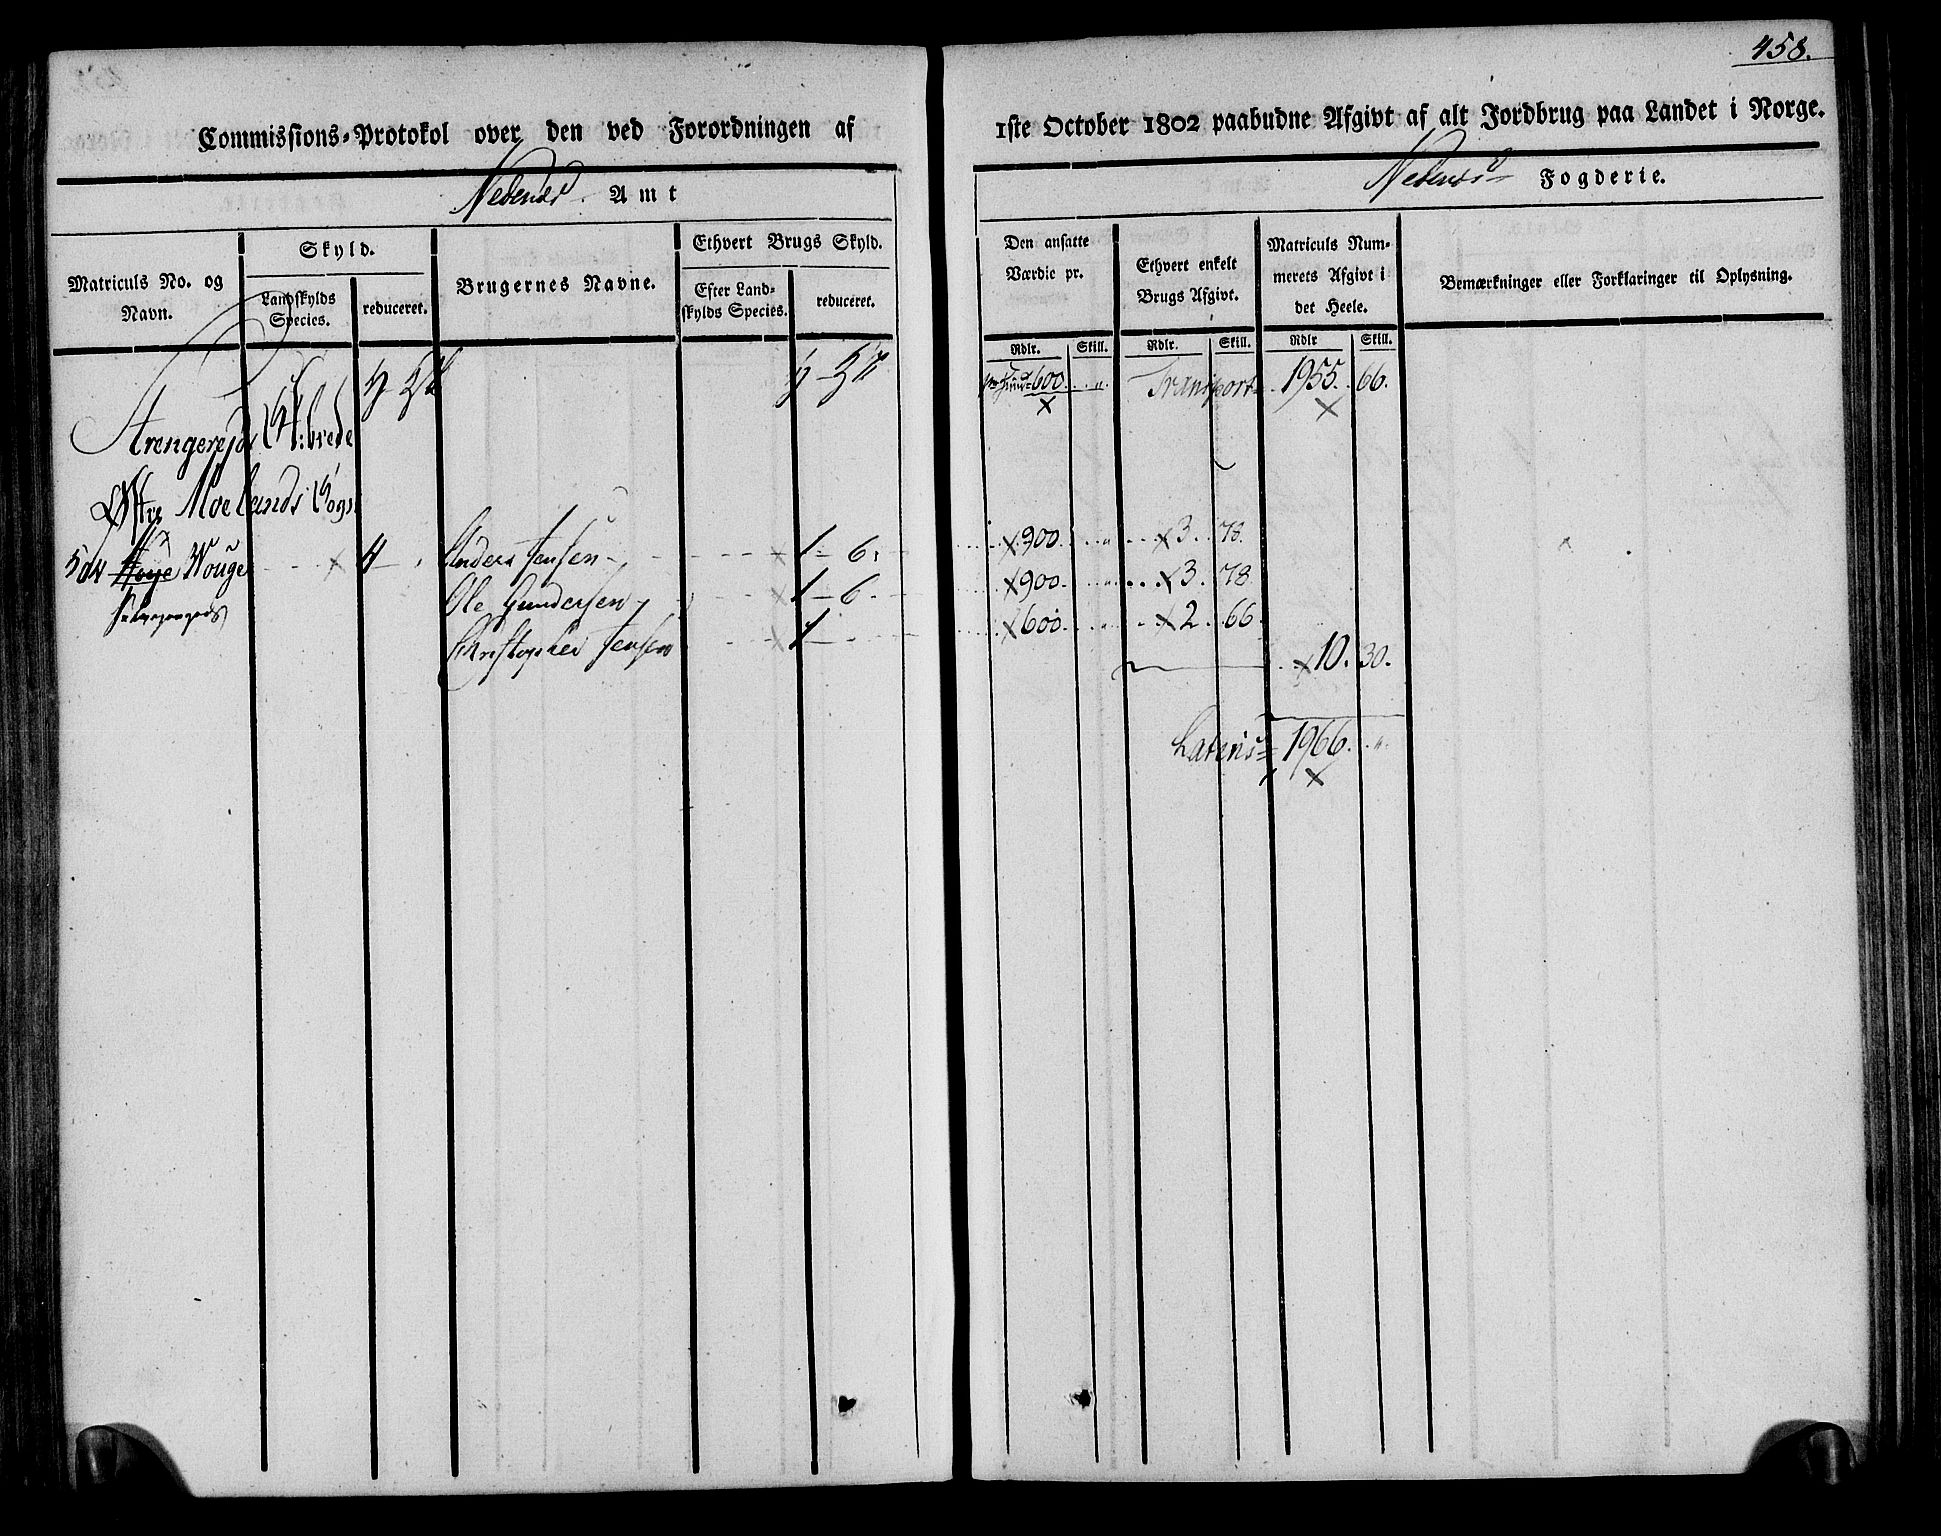 458.
Commissions-Protokol over den ved Forordningen af 1ste October 1802 paabudne Afgivt af alt Jordbrug paa Landet i Norge.
Nedenæs Amt
Nedenæs Fogderie.
Matriculs No. og Navn.
Skyld.
Landskylds Species.
reduceret.
Brugernes Navne.
Ethvert Brugs Skyld.
Efter Landskylds Species.
reduceret.
Den ansatte Værdie pr.
Ethvert enkelt Brugs Afgivt.
Matriculs Nummerets Afgivt i det Heele.
Bemærkninger eller Forklaringer til Oplysning.
Rdlr. Skill. Rdlr. Skill. Rdlr Skill.
600. " Transport 1955. 66.
Østre Moelands Sogn
Høye Wouge 4 Anders Jensen 1 - 6. 900. " 3. 78.
Ole Gundersen 1 - 6. 900. 3. 78
Christopher Jensen 1 600. " 2. 66.
10. 30.
Lateris 1966. "